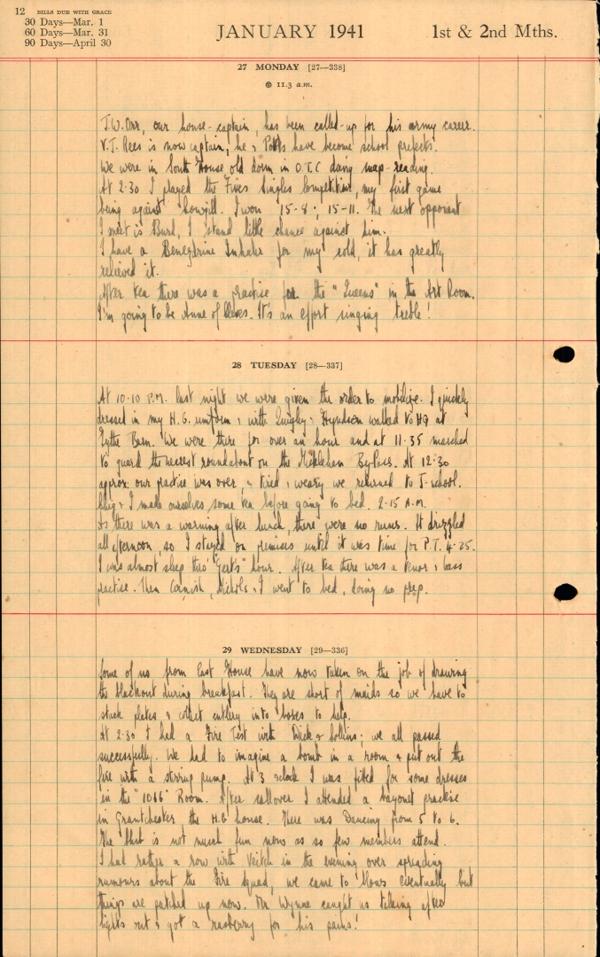 12 BILLS DUE WITH GRACE
30 Days—Mar. 1
60 Days—Mar. 31
90 Days—April 30
JANUARY 1941
1st & 2nd Mths.
27 MONDAY [27—338]
11.3 a.m.
J.W. Orr, our house-captain, has been called-up for his army career.
V.T. Rees is now captain; he & Potts have become school prefects.
We were in South House old dorm in O.T.C doing map-reading.
At 2·30 I played the Fives Singles Competition, my first game
being against Sowgill. I won 15-8; 15-11. The next opponent
I meet is Burd, I stand little chance against him.
I have a Benezdrine Inhaler for my cold, it has greatly
relieved it.
After tea there was a practice for the "Queens" in the Art Room.
I'm going to be Anne of Cleves. It's an effort singing treble!
28 TUESDAY [28—337]
At 10·10 P.M. last night we were given the order to mobilize. I quickly
dressed in my H.G. uniform & with Quigley & Hyndson walked to HQ at
Barn. We were there for over an hour and at 11·35 marched
to guard the nearest roundabout on the Mickleham ByPass. At 12·30
aprox. our practice was over, & tired & weary we returned to J-school.
& I made ourselves some tea before going to bed. 2-15 A.M.
As there was a warning after lunch, there were no runs. It drizzled
all afternoon, so I stayed on premises until it was time for P.T. 4-25.
I was almost sleep thro' "Gerts" hour. After tea there was a tenor & bass
practise. Then Cornish, Nichols & I went to bed, doing no prep.
29 WEDNESDAY [29—336]
Some of us from East House have now taken on the job of drawing
the blackout during breakfast. They are short of maids so we have to
stack plates & collect cutlery into boxes to help.
At 2·30 I had a Fire Test with Dick & Collins; we all passed
successfully. We had to imagine a bomb in a room & put out the
fire with a stirrup pump. At 3 o'clock I was fitted for some dresses
in the "1066" Room. After callover I attended a bayonet practise
in Grantchester the H.G house. There was Dancing from 5 to 6.
The is not much fun now as so few members attend.
I had rather a row with Veitch in the evening over spreading
rumours about the Fire Squad, we came to blows eventually but
things are patched up now. Mr Wynne caught us talking after
lights out & got a rasberry for his pains!